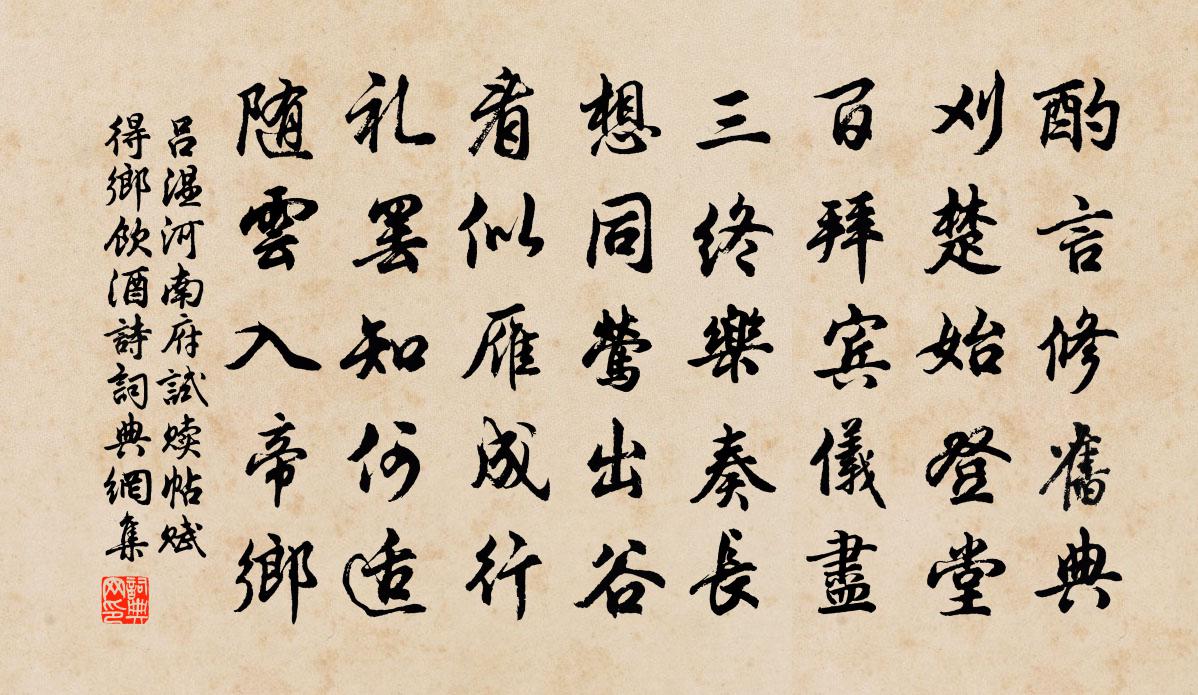 酌言修舊典
刈楚始登堂
百拜賓儀盡
三終樂奏長
想同鶯出谷
看似雁成行
礼罢知何适
随雲入帝鄉
吕温河南府試赎帖赋
得鄉飲酒詩詞典網集
詞典
网印